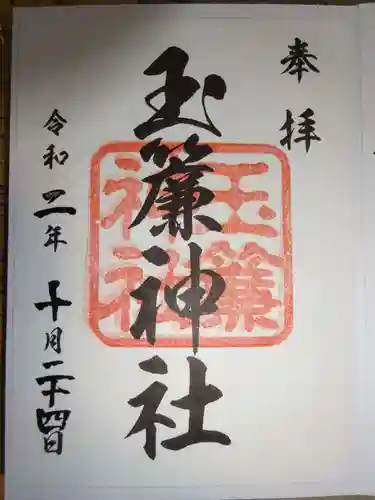 奉拝
玉簾神社
玉簾
神社
令和二年十月二十四日